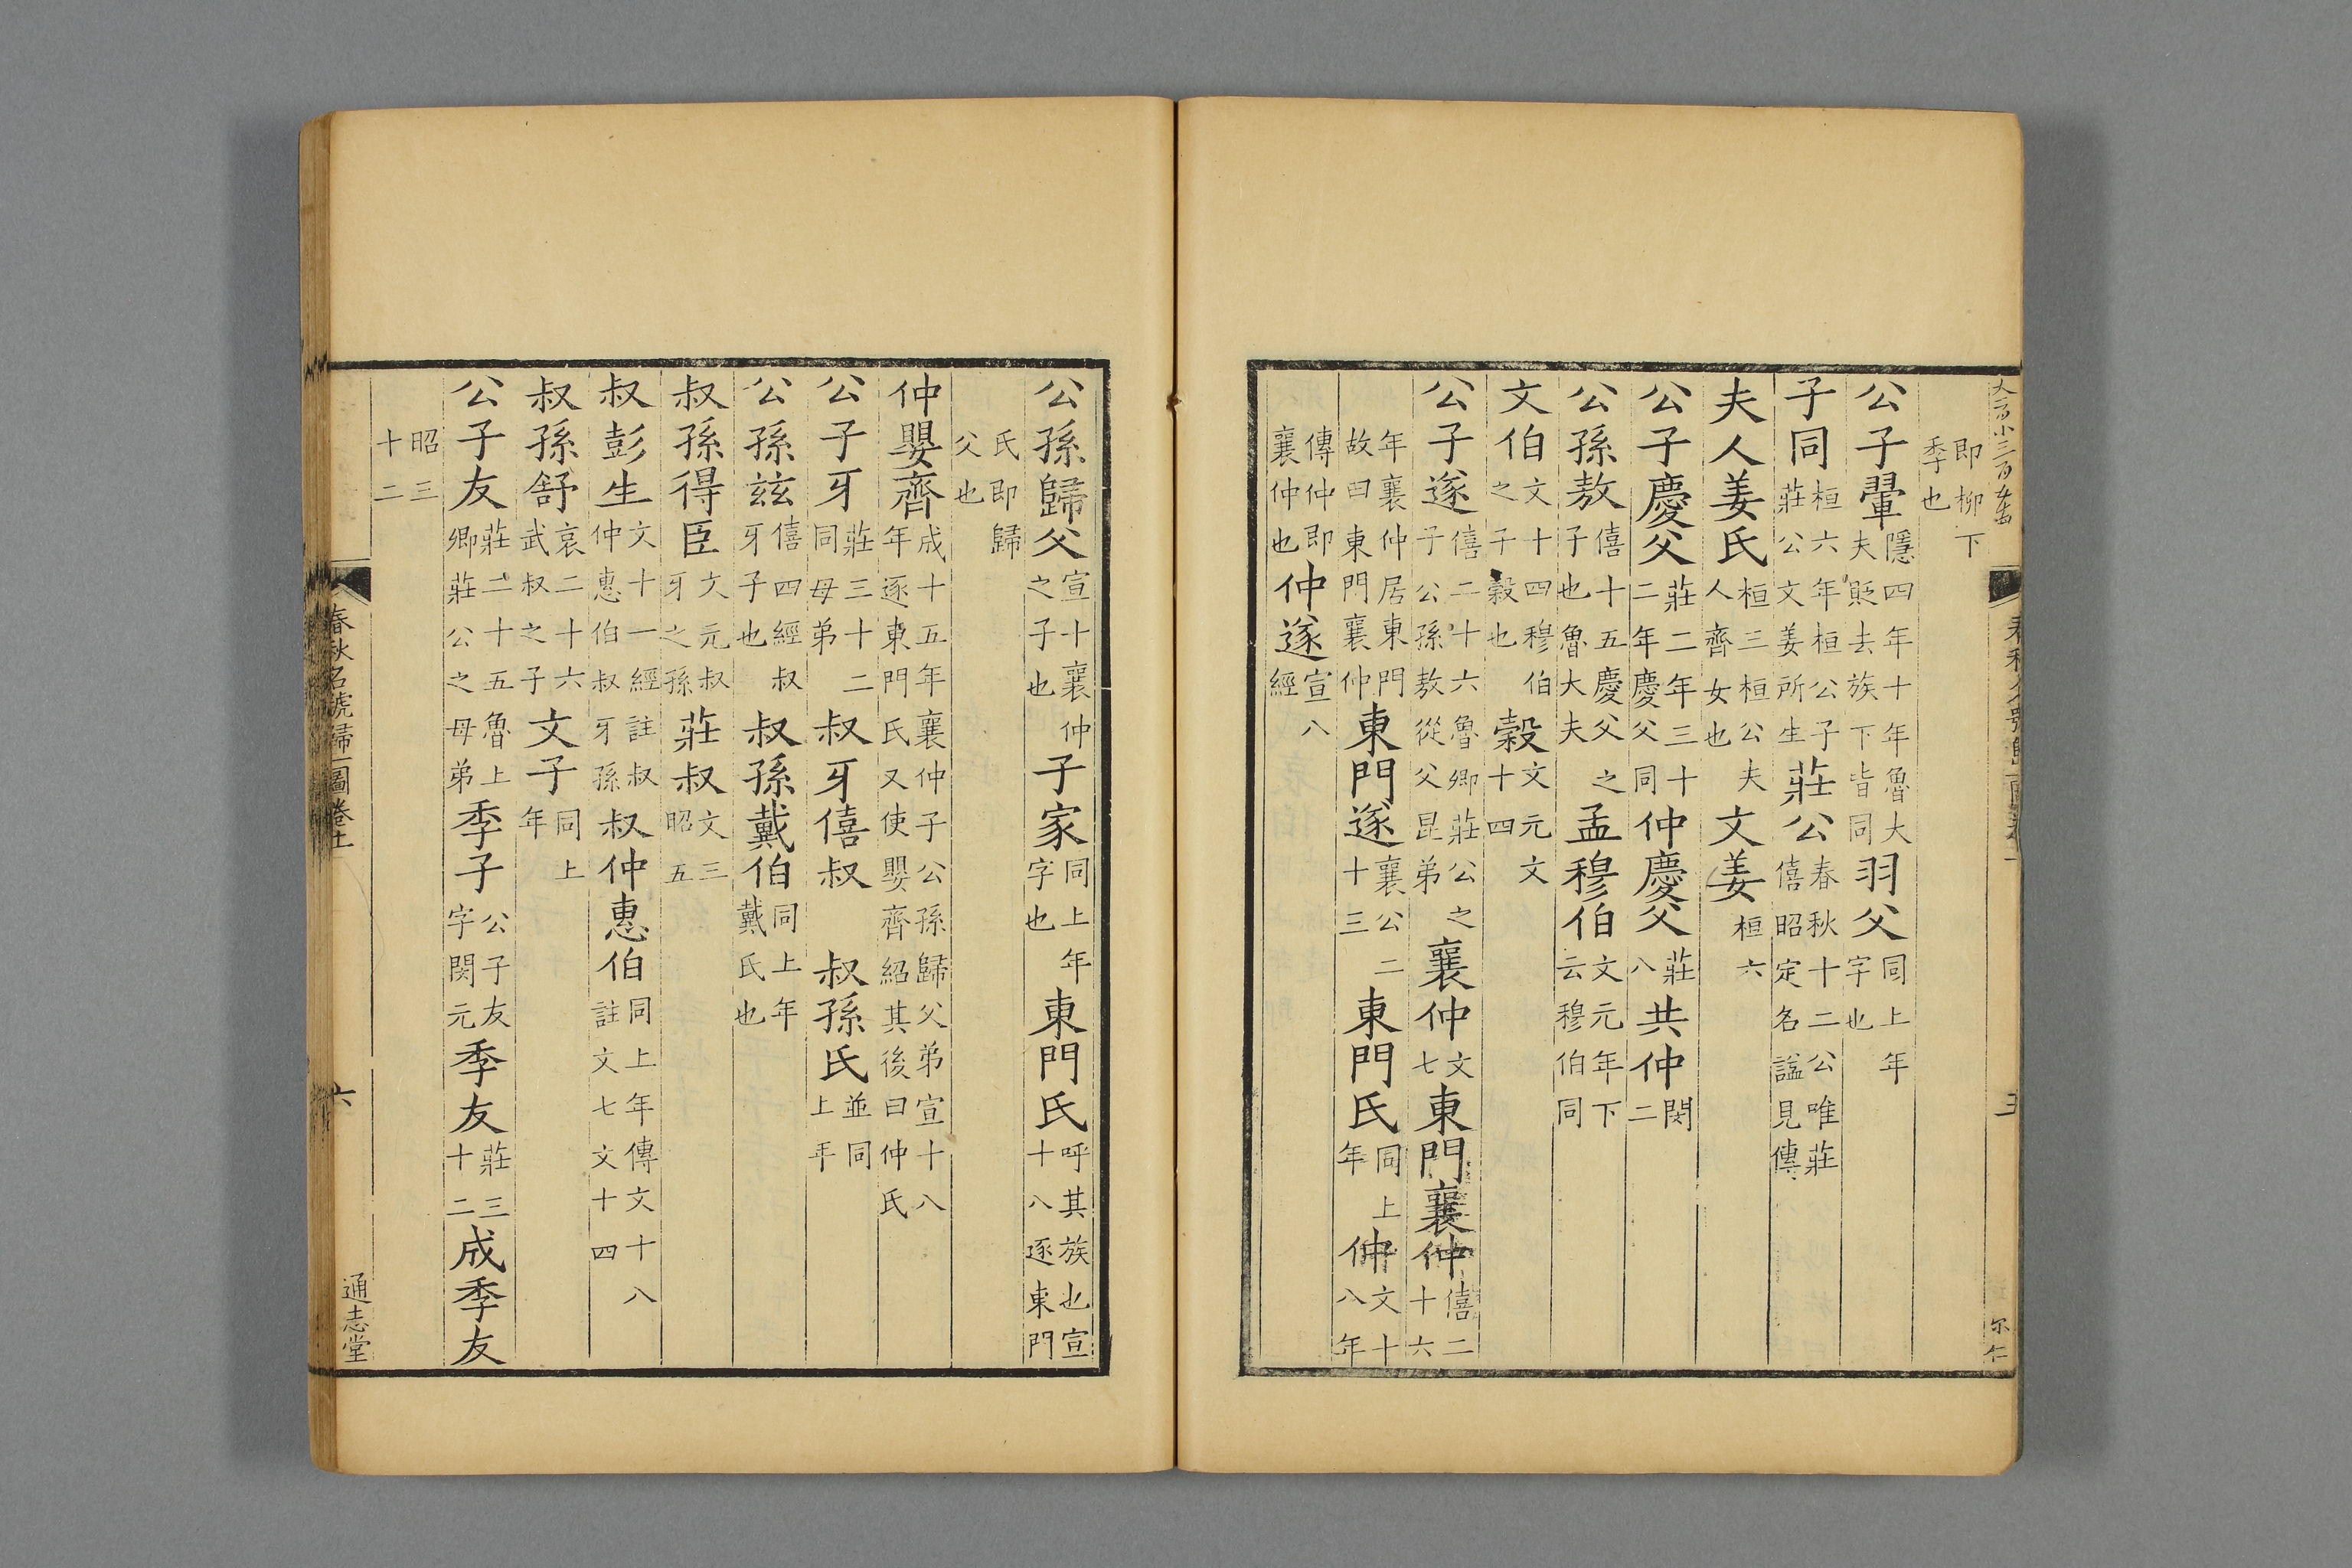 即柳下季也
公子翬隱四年十年魯大夫貶去族下皆同羽父同上年字也
子同桓六年桓公子莊公文姜所生莊公春秋十二公唯莊僖昭定名謚見傳
夫人姜氏桓三桓公夫人齊女也文姜桓六
公子慶父莊二年三十二年慶父同仲慶父莊八共仲閔二
公孫敖僖十五慶父之子也魯大夫孟穆伯文元年下云穆伯同
文伯文十四穆伯之子穀也穀文元文十四
公子遂僖二十六魯卿莊公之子公孫敖從父昆弟襄仲文七東門襄仲僖二十六
年襄仲居東門故曰東門襄仲東門遂襄公二十三東門氏同上年仲文十八年
傳仲即襄仲也仲遂宣八經
公孫歸父宣十襄仲之子也子家同上年字也東門氏呼其族也宣十八逐東門
氏即歸父也
仲嬰齊成十五年襄仲子公孫歸父弟宣十八年逐東門氏又使嬰齊紹其後曰仲氏
公子牙莊三十二同母弟叔牙僖叔 叔孫氏並同上年
公孫玆僖四經叔牙子也叔孫戴伯同上年戴氏也
叔孫得臣文元叔牙之孫莊叔文三昭五
叔彭生文十一經註叔仲惠伯叔牙孫叔仲惠伯同上年傳文十八註文七文十四
叔孫舒哀二十六武叔之子文子同上年
公子友莊二十五魯上卿莊公之母弟季子公子友字閔元季友莊三十二成季友
昭三十二
春秋名號歸一圖卷上
六
通志堂